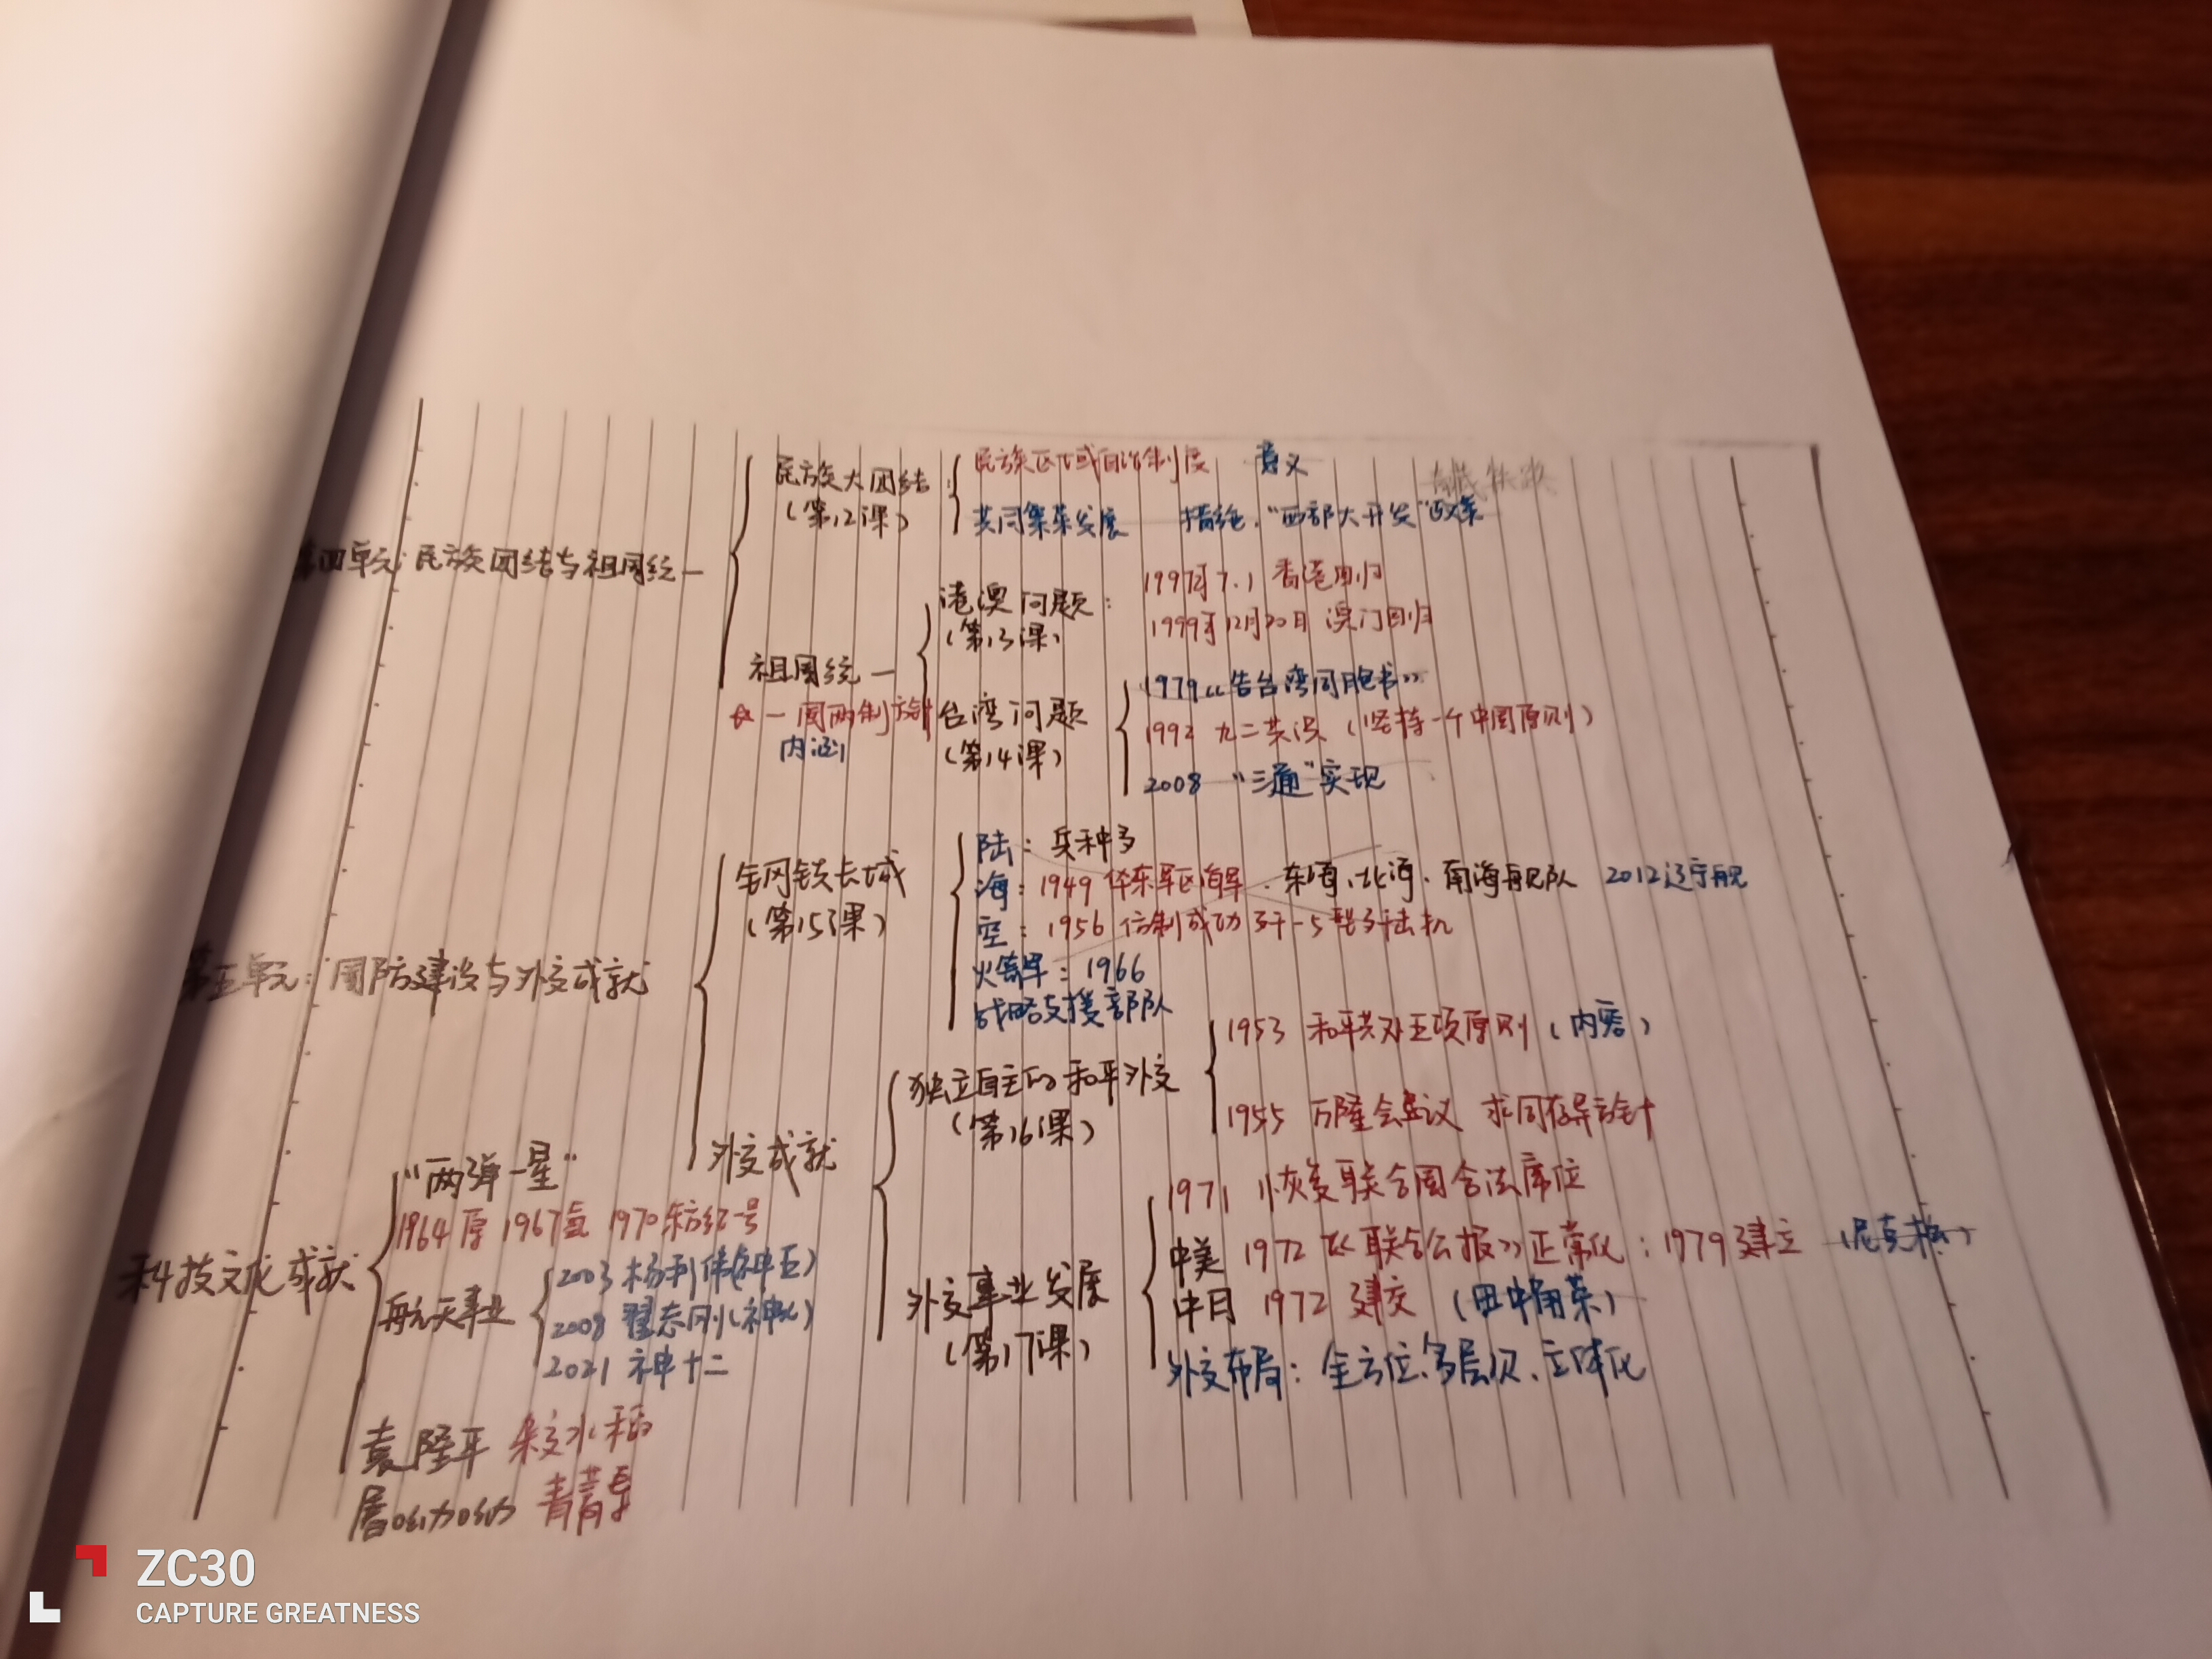 民族大团结 民族区域自治制度 意义
(第12课) 共同繁荣发展 措施:“西部大开发”政策
第四单元:民族团结与祖国统一
港澳问题: 1997年7.1 香港回归
(第13课) 1999年12月20日 澳门回归
祖国统一
☆一国两制方针
内涵
台湾问题 1979《告台湾同胞书》
(第14课) 1992 九二共识 (坚持一个中国原则)
2008 “三通”实现
钢铁长城 陆:兵种多
(第15课) 海:1949 华东军区海军、东海、北海、南海舰队 2012辽宁舰
空:1956 仿制成功歼-5型歼击机
火箭军:1966
战略支援部队
第五单元:国防建设与外交成就
独立自主的和平外交 1953 和平共处五项原则(内容)
(第16课) 1955 万隆会议 求同存异方针
外交成就
1971 恢复联合国合法席位
外交事业发展 中美 1972《联合公报》正常化:1979建立 (尼克松)
(第17课) 中日 1972 建交 (田中角荣)
外交布局:全方位、多层次、立体化
科技文化成就
“两弹一星”
1964原 1967氢 1970东方红一号
航天事业 2003 杨利伟(神五)
2008 翟志刚(神七)
2021 神十二
袁隆平 杂交水稻
屠呦呦 青蒿
ZC30
CAPTURE GREATNESS